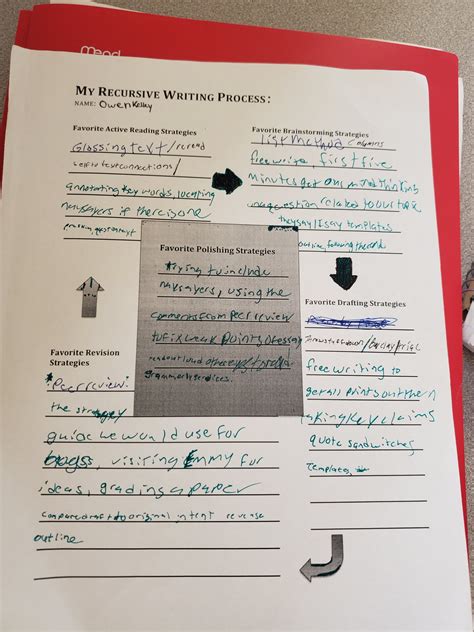 Mead
MY RECURSIVE WRITING PROCESS:
NAME: Owen Kelley
Favorite Active Reading Strategies
Glossing text/reread
self to text connections/
annotating key words, locating
naysayers if there is one
Favorite Brainstorming Strategies
List method
freewrite first five
minutes get our mind thinking
question related to our topic
they say/I say templates
outline, following the
Favorite Polishing Strategies
trying to include
naysayers, using the
comments from peer review
to fix weak points of essay
read out loud
grammar services.
Favorite Drafting Strategies
freewriting to
get all points out then
making key claims
quote sandwiches
templates
Favorite Revision
Strategies
*Peer review:
the strategy
guide we would use for
blogs, visiting Emmy for
ideas, grading a paper
compare draft to original intent reverse
outline